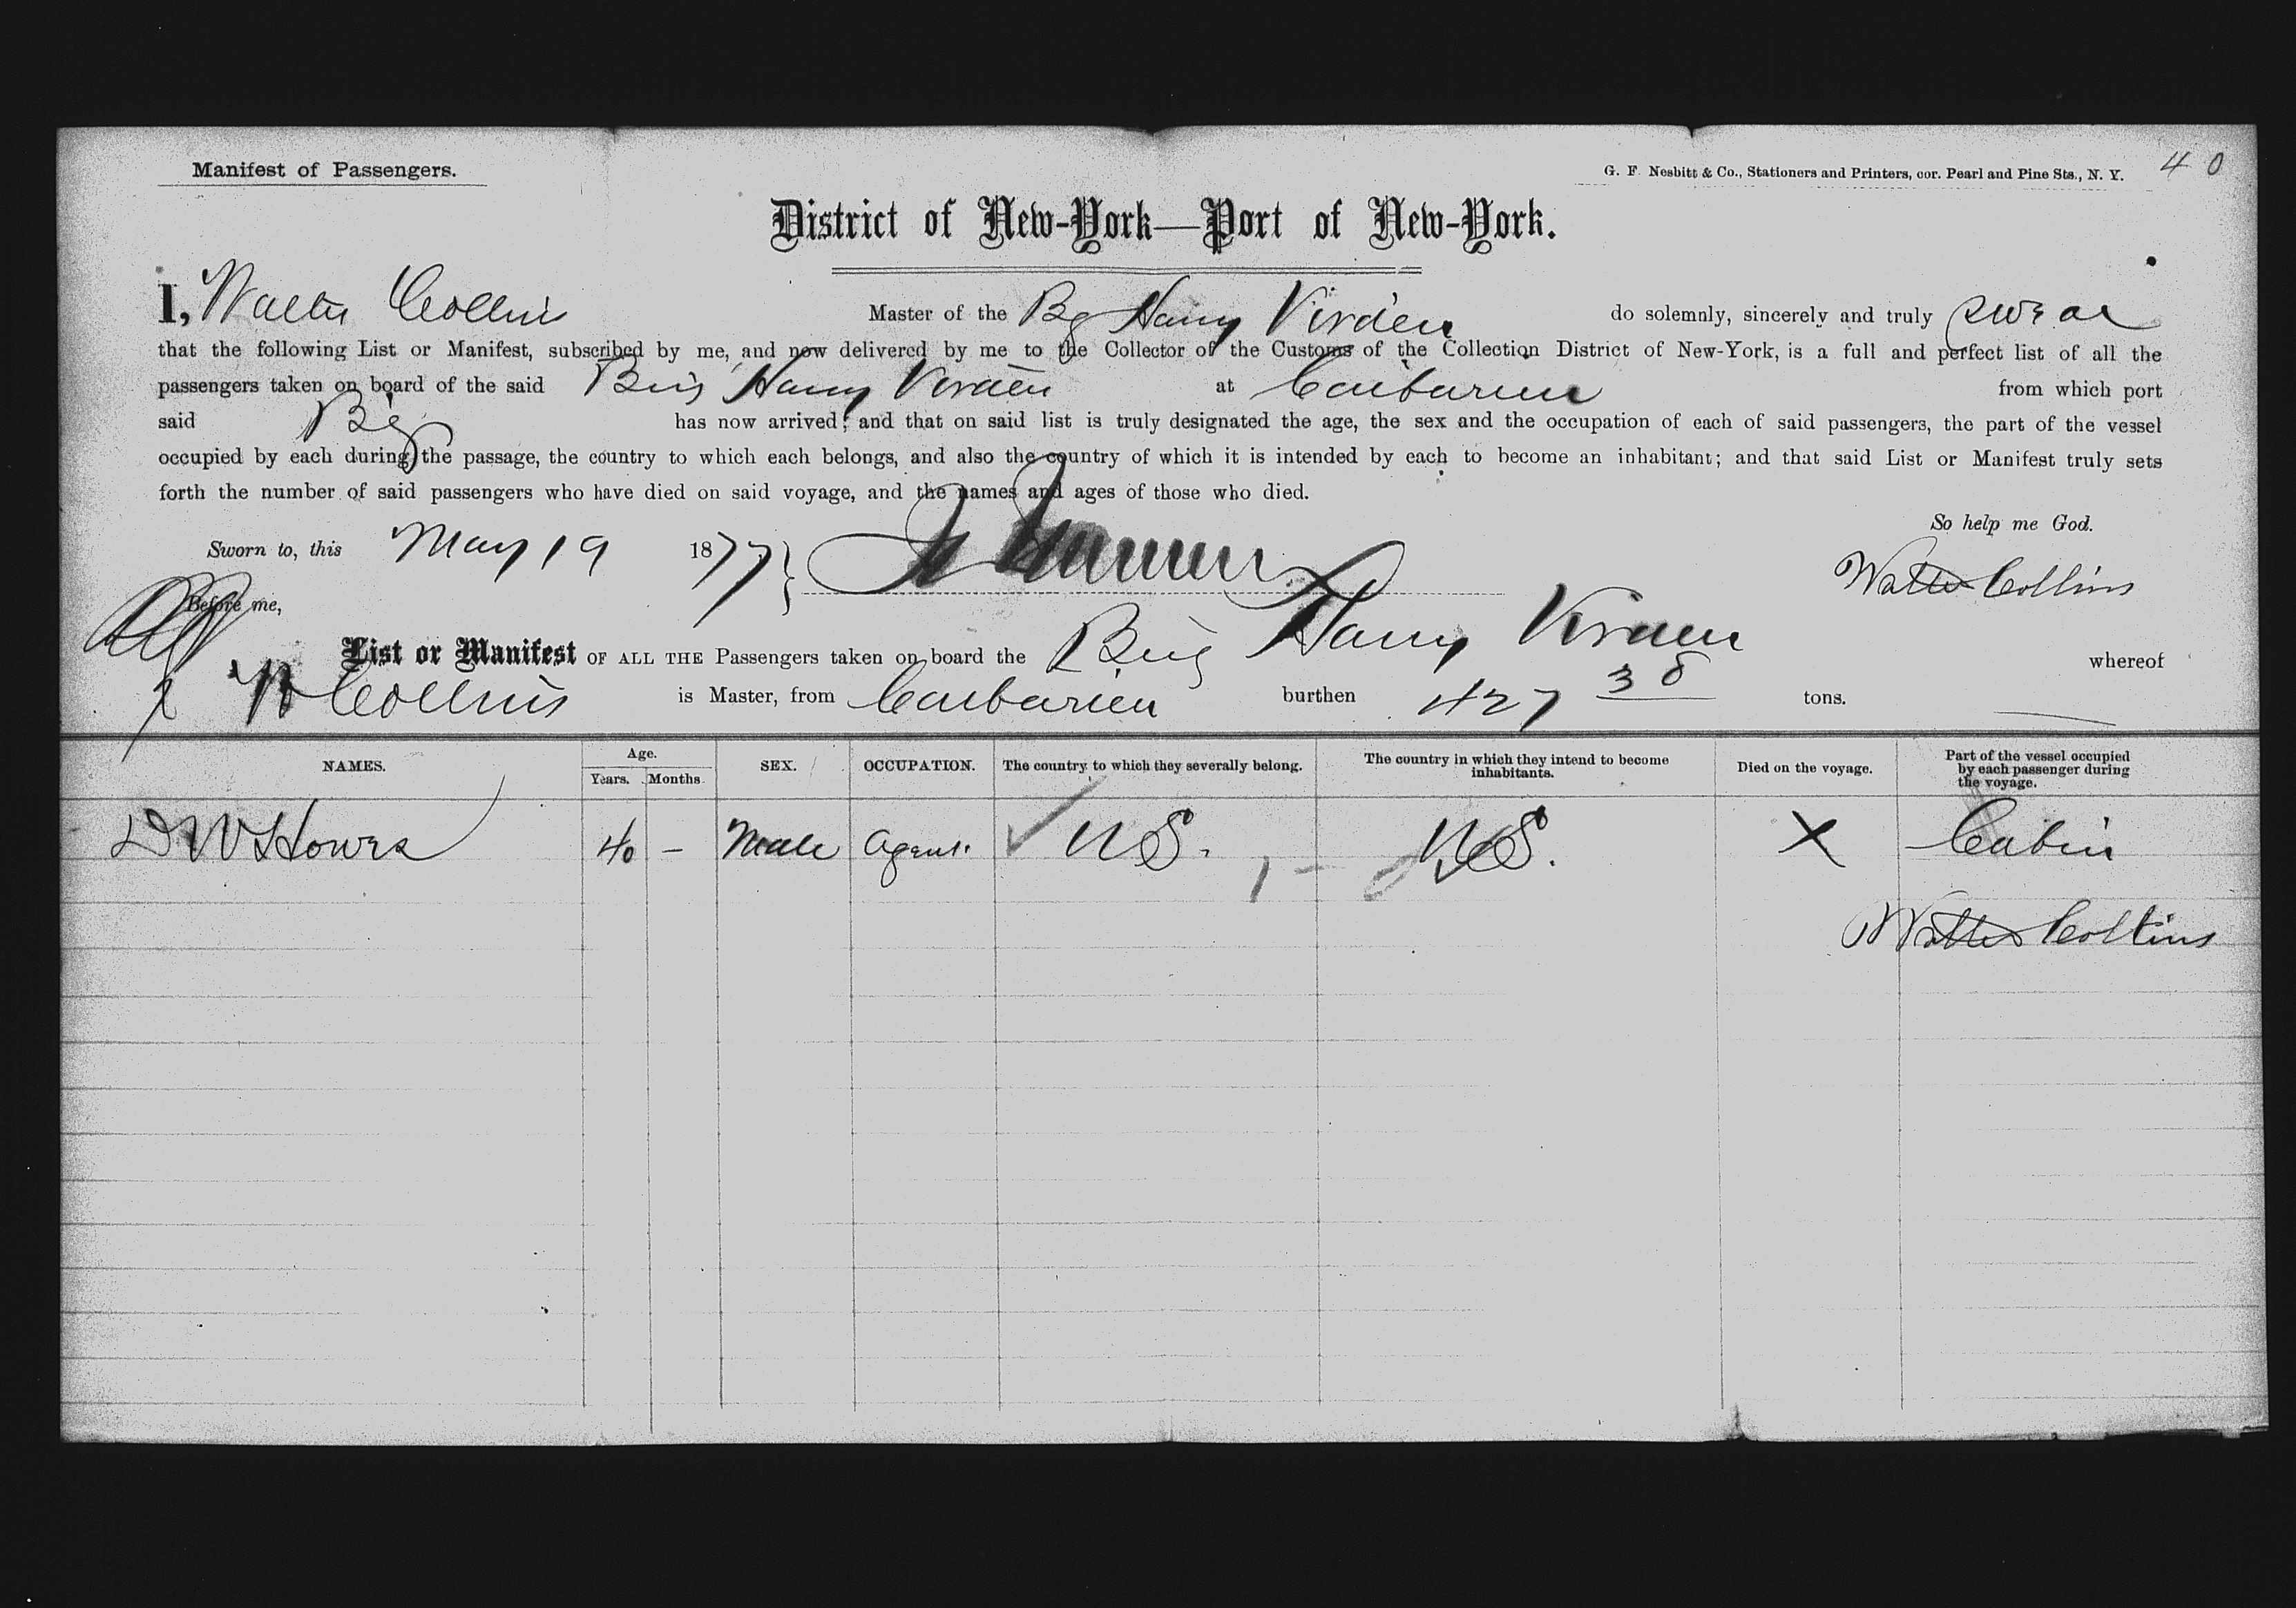 Manifest of Passengers.
G. F. Nesbitt & Co., Stationers and Printers, cor. Pearl and Pine Sts., N. Y.
40
District of New-York—Port of New-York.
I, Walter Collins Master of the Bg Harry Virden do solemnly, sincerely and truly swear
that the following List or Manifest, subscribed by me, and now delivered by me to the Collector of the Customs of the Collection District of New-York, is a full and perfect list of all the
passengers taken on board of the said Brig Harry Virden at Caibarien from which port
said Brig has now arrived; and that on said list is truly designated the age, the sex and the occupation of each of said passengers, the part of the vessel
occupied by each during the passage, the country to which each belongs, and also the country of which it is intended by each to become an inhabitant; and that said List or Manifest truly sets
forth the number of said passengers who have died on said voyage, and the names and ages of those who died.
So help me God.
Sworn to, this May 19 1877
Walter Collins
Before me,
List or Manifest OF ALL THE Passengers taken on board the Brig Harry Virden whereof
W Collins is Master, from Caibarien burthen 427 38 tons.
NAMES.
Age.
Years. Months.
SEX.
OCCUPATION.
The country to which they severally belong.
The country in which they intend to become
inhabitants.
Died on the voyage.
Part of the vessel occupied
by each passenger during
the voyage.
D W Howes 40 — Male Agent. U S. U S. X Cabin
Walter Collins